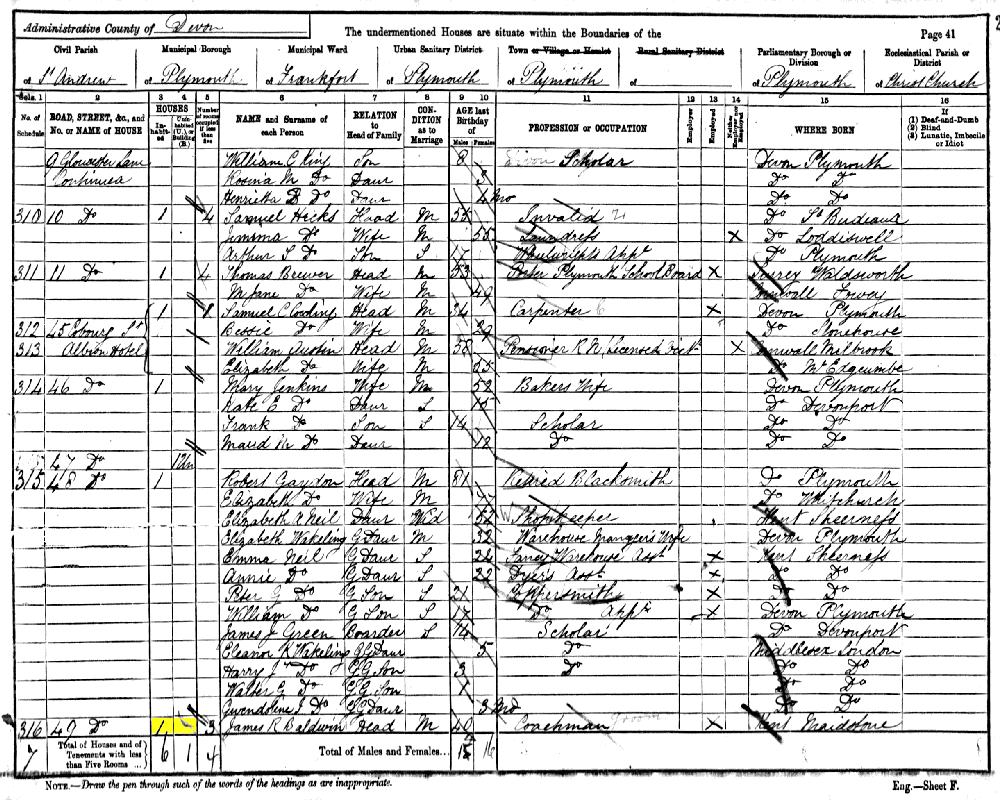 Administrative County of Devon
The undermentioned Houses are situate within the Boundaries of the
Page 41
Civil Parish
Municipal Borough
Municipal Ward
Urban Sanitary District
Town or Village or Hamlet
Rural Sanitary District
Parliamentary Borough or Division
Ecclesiastical Parish or District
of St Andrew
of Plymouth
of Frankfort
of Plymouth
of Plymouth
of
of Plymouth
of Christ Church
Cols. 1 2 3 4 5 6 7 8 9 10 11 12 13 14 15 16
No. of Schedule
ROAD, STREET, &c., and No. or NAME of HOUSE
HOUSES
Inhabited
Uninhabited (U.) or Building (B.)
Number of rooms occupied if less than five
NAME and Surname of each Person
RELATION to Head of Family
CONDITION as to Marriage
AGE last Birthday of
Males Females
PROFESSION or OCCUPATION
Employer
Employed
Neither Employer nor Employed
WHERE BORN
If (1) Deaf-and-Dumb (2) Blind (3) Lunatic, Imbecile or Idiot
9 Gloucester Lane William C Son 8 Scholar Devon Plymouth
Continued Rosina M Do Daur 3 Do Do
Henrietta B Do Daur 4 Mo Do Do
310 10 Do 1 4 Samuel Hicks Head M 55 Invalid Do St Budeaux
Jemima Do Wife M 55 Laundress X Do Loddiswell
Arthur S Do Son S 17 Wheelwrights Appr Do Plymouth
311 11 Do 1 4 Thomas Brewer Head M 53 Plymouth School Board X Surrey Waldsworth
M Jane Do Wife M 49 Cornwall Fowey
1 Samuel C Cowling Head M 34 Carpenter X Devon Plymouth
312 45 Cobourg St Bessie Do Wife M 29 Do Stonehouse
313 Albion Hotel William Austin Head M 58 Pensioner R N/Licensed Vict X Cornwall Milbrook
Elizabeth Do Wife M 55 Do Mt Edgcumbe
314 46 Do 1 Mary Jenkins Wife M 52 Bakers Wife Devon Plymouth
Kate E Do Daur S 15 Do Devonport
Frank Do Son S 14 Scholar Do Do
Maud M Do Daur 12 Do Do Do
47 Do 1 Un
315 48 Do 1 Robert Gaydon Head M 81 Retired Blacksmith Do Plymouth
Elizabeth Do Wife M 77 Do Whitchurch
Elizabeth A Neil Daur Wid 52 Shopkeeper Kent Sheerness
Elizabeth Wakeling G Daur M 32 Warehouse Manager's Wife Devon Plymouth
Emma Neil G Daur S 24 Fancy Warehouse Asst X Kent Sheerness
Annie Do G Daur S 22 Dyer's Asst X Do Do
Peter G Do G Son S 21 Coppersmith X Do Do
William Do G Son S 17 Do Appr X Devon Plymouth
James J Green Boarder S 14 Scholar Do Devonport
Eleanor R Wakeling G G Daur 5 Do Middlesex London
Harry J Do G G Son 3 Do Do Do
Walter G Do G G Son Do Do
Gwendoline J Do G G Daur 3 Mo Do Do
316 49 Do 1 3 James R Baldwin Head M 40 Coachman Groom X Kent Maidstone
7 Total of Houses and of Tenements with less than Five Rooms ... 6 1 4 Total of Males and Females... 15 16
NOTE.—Draw the pen through such of the words of the headings as are inappropriate.
Eng.—Sheet F.